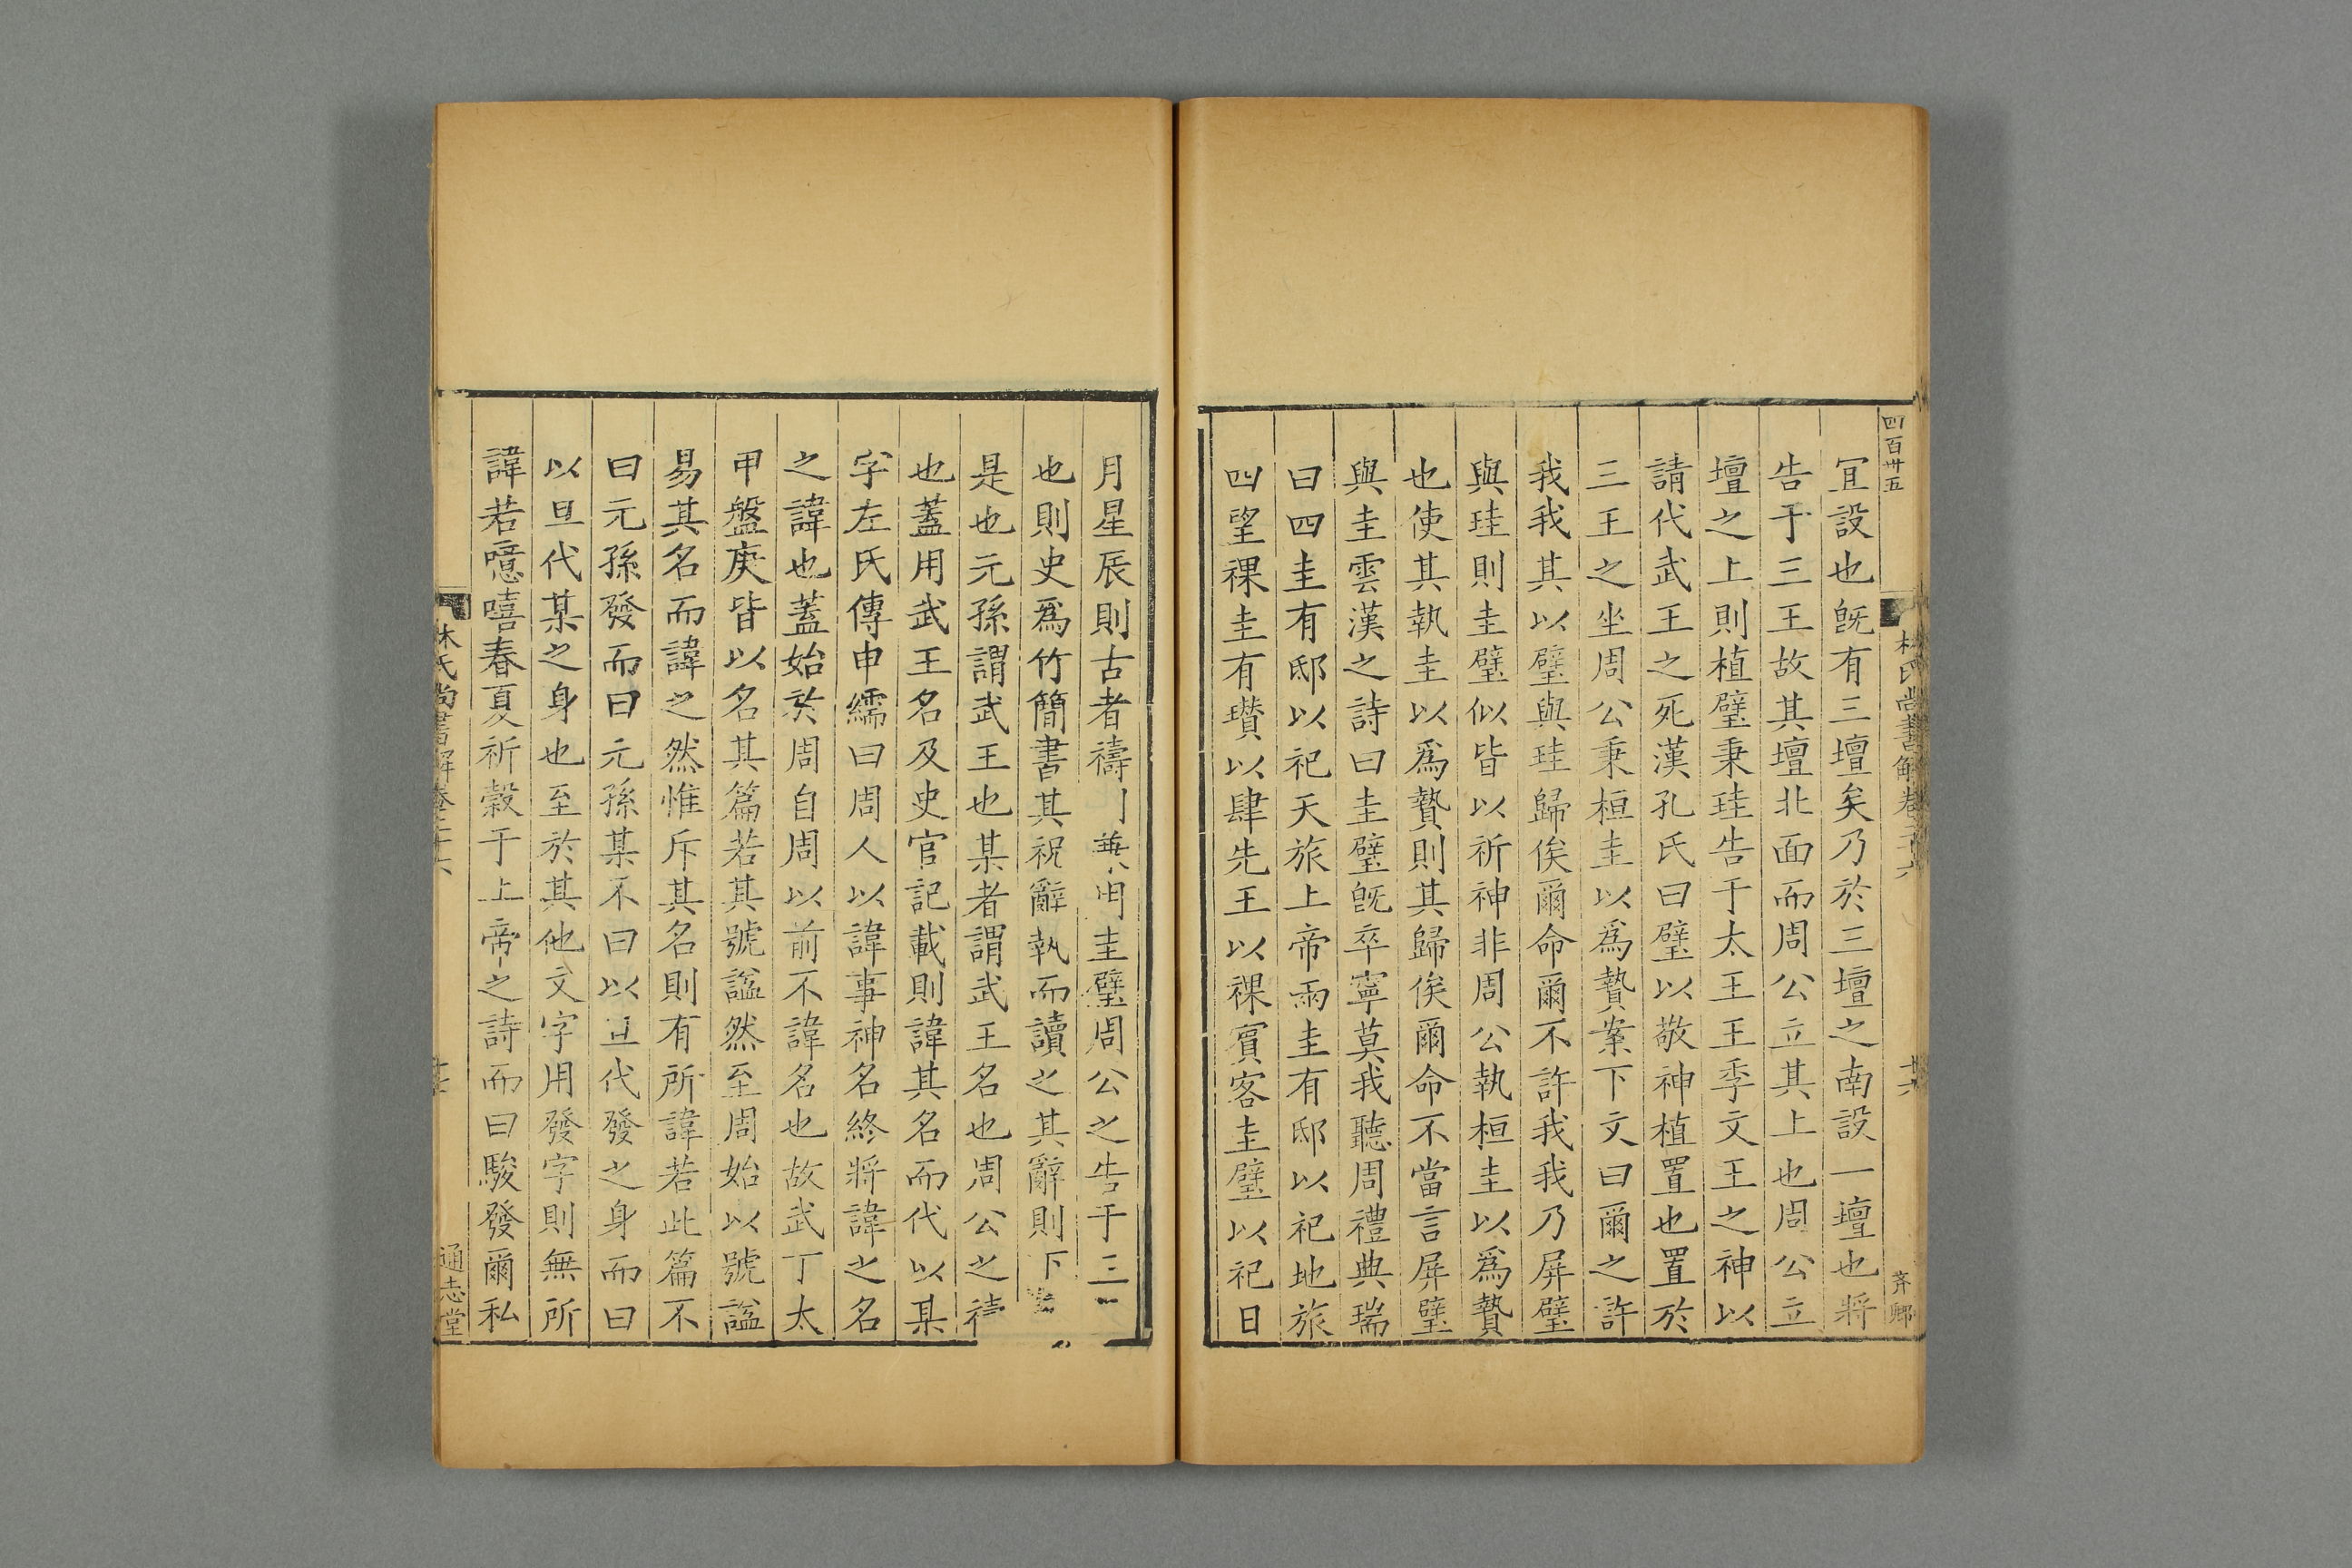 四百卅五
林氏尚書解卷二十六
十六
齊卿
冝設也旣有三壇矣乃於三壇之南設一壇也將
告于三王故其壇北面而周公立其上也周公立
壇之上則植璧秉珪告于太王王季文王之神以
請代武王之死漢孔氏曰璧以敬神植置也置於
三王之坐周公秉桓圭以爲贄案下文曰爾之許
我我其以璧與珪歸俟爾命爾不許我我乃屏璧
與珪則圭璧似皆以祈神非周公執桓圭以爲贄
也使其執圭以爲贄則其歸俟爾命不當言屏璧
與圭雲漢之詩曰圭璧旣卒寧莫我聽周禮典瑞
曰四圭有邸以祀天旅上帝兩圭有邸以祀地旅
四望祼圭有瓚以肆先王以祼賔客圭璧以祀日
月星辰則古者禱圭璧周公之告于三
也則史爲竹簡書其祝辭執而讀之其辭則下
是也元孫謂武王也某者謂武王名也周公之禱
也蓋用武王名及史官記載則諱其名而代以某
字左氏傳申繻曰周人以諱事神名終將諱之名
之諱也蓋始於周自周以前不諱名也故武丁太
甲盤庚皆以名其篇若其號諡然至周始以號諡
易其名而諱之然惟斥其名則有所諱若此篇不
曰元孫發而曰元孫某不曰以旦代發之身而曰
以旦代某之身也至於其他文字用發字則無所
諱若噫嘻春夏祈穀于上帝之詩而曰駿發爾私
林氏尚書解卷二十六
十七
通志堂